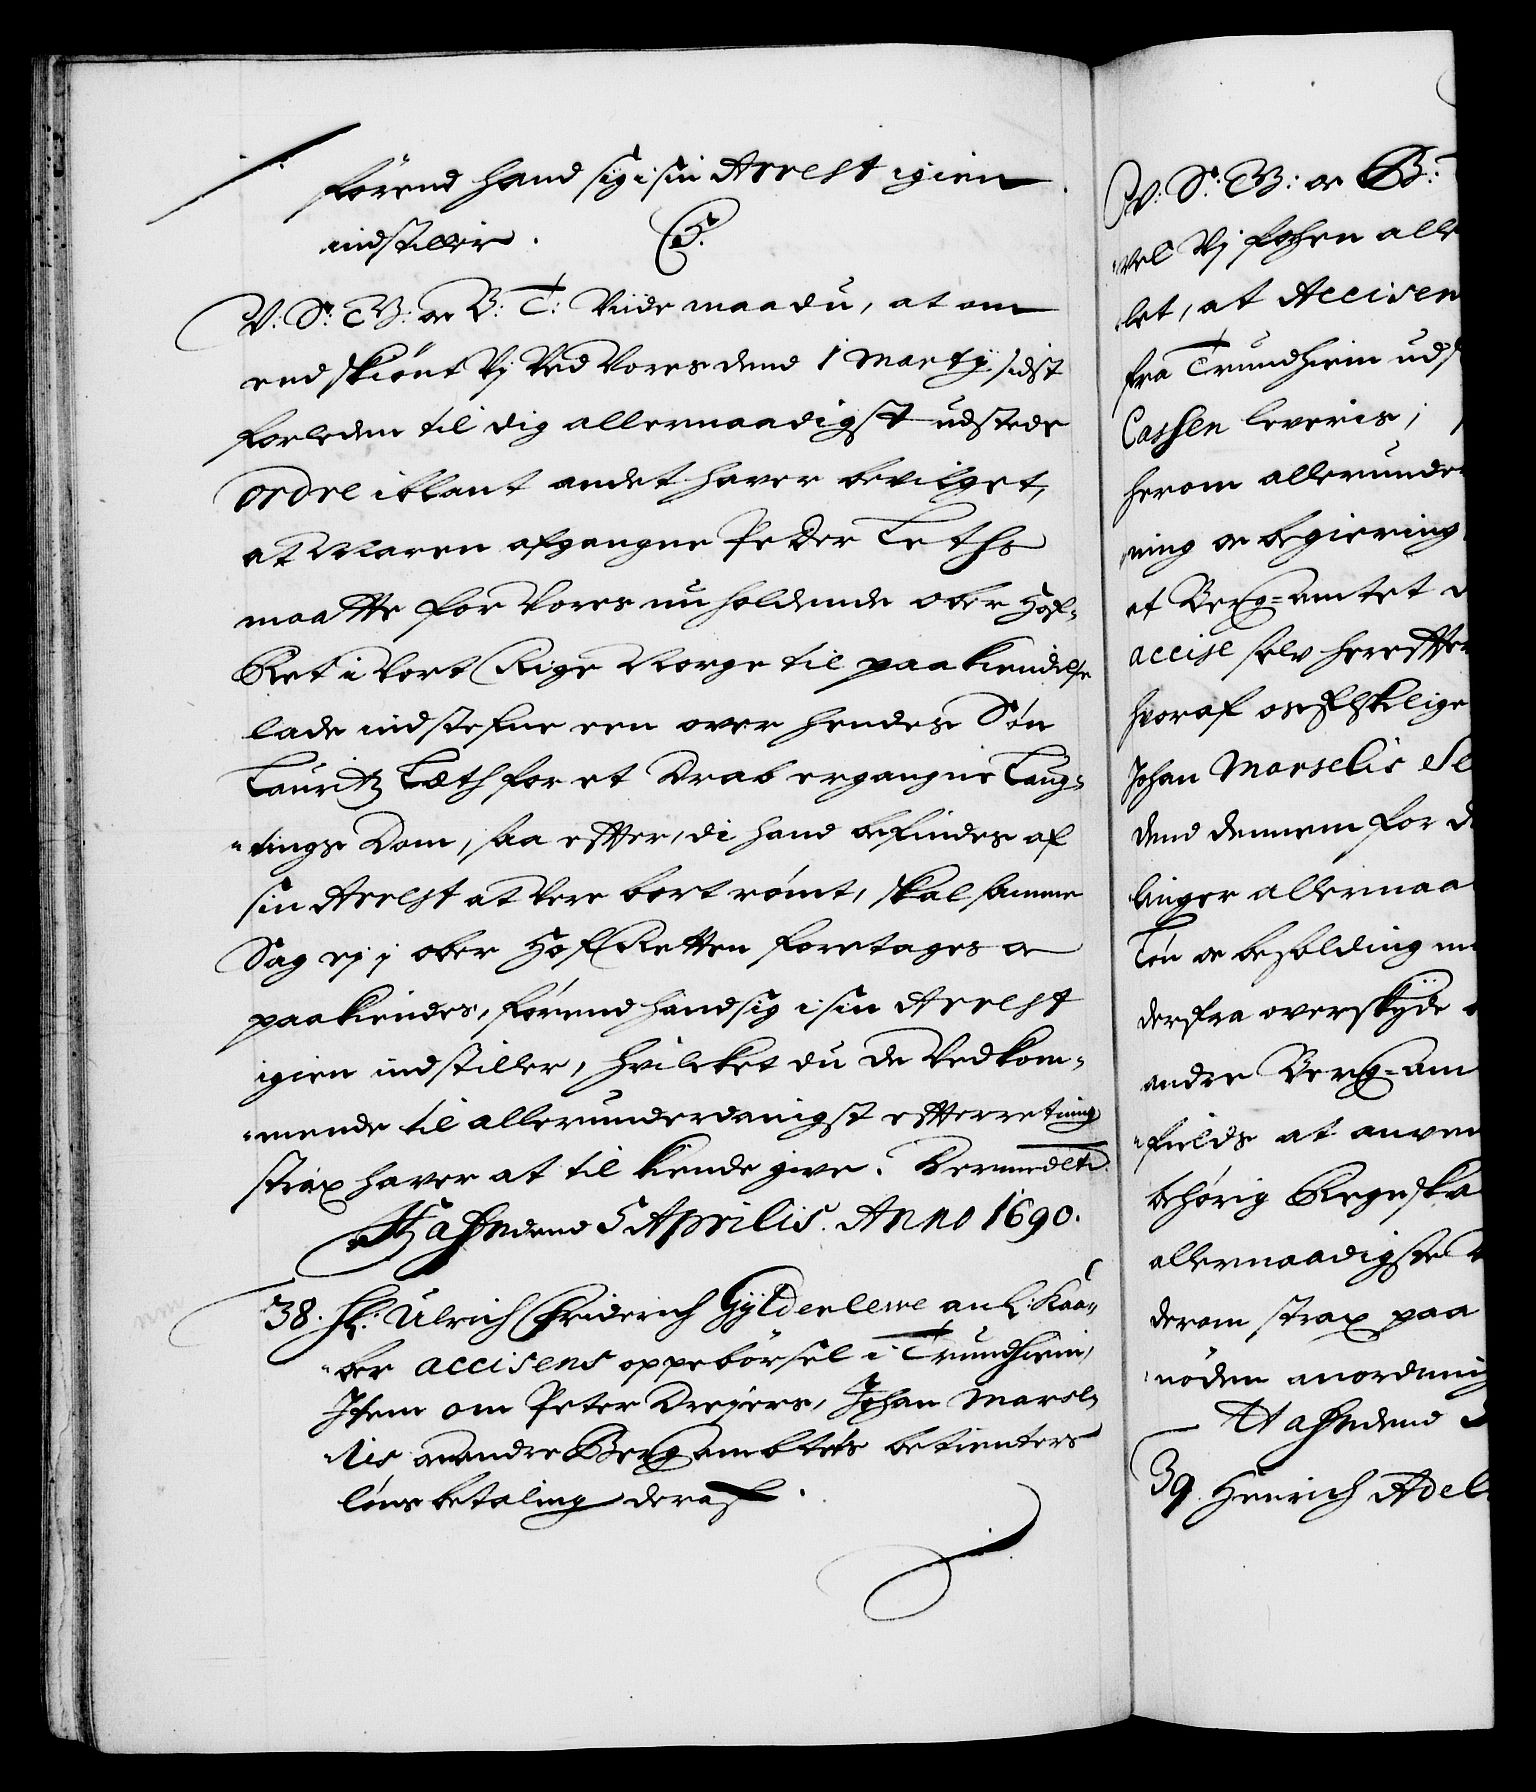 förend hand sig i sin Arrest igien
indstiller. C5.
V: S: G: oc B: T: Viide maa du, at om
end skiönt Vj Ved Vores dend 1 Marty sidst
forleden til dig allernaadigst udstede
ordre iblant andet haver bevilget,
at Maren afgangne Peder Leths
maatte for Vores nu holdende ober Hof-
Ret i Vort Rige Norge til paakiendelse
lade indstefne een over hendes Sön
Lauritz Læth for et Drab ergangne Laug-
tings Dom, saa efter, di hand befindes af
sin Arrest at Vere bortrömt, skal samme
Sag ej j ober Hof Retten foretages oc
paakiendes, förend hand sig i sin Arrest
igien indstiller, hvilcket du de Vedkom-
mende til allerunderdanigst efterretning
strax haver at til kiende give. Dermedetc.
Hafn dend 5 Aprilis. Anno 1690.
38. H: Ulrich Friderich Gyldenlewe an: Kaa-
ber accisens oppebörsel i Trundhiem,
Item om Peter Dreyers, Johan Marse-
lis oc andre Bergambtets betienters
löns betaling deraf.
V: S: G: oc B: T
vel Vj forhen alle
let, at Accisen
fra Trundhiem uds
Cassen leveris,
herom allerunde
ning oc begiering
at Berg-amtet
accise selv herefter
hvoraf
Johan Marselis
dend dennem for
linger allernaa
Lön oc besolding
derfra overskyde
andre Berg-am
fields at anven
behörig Regnska
allernaadigste
derom strax paa
nöden anordning
Hafn dend
39. Henrich Adel